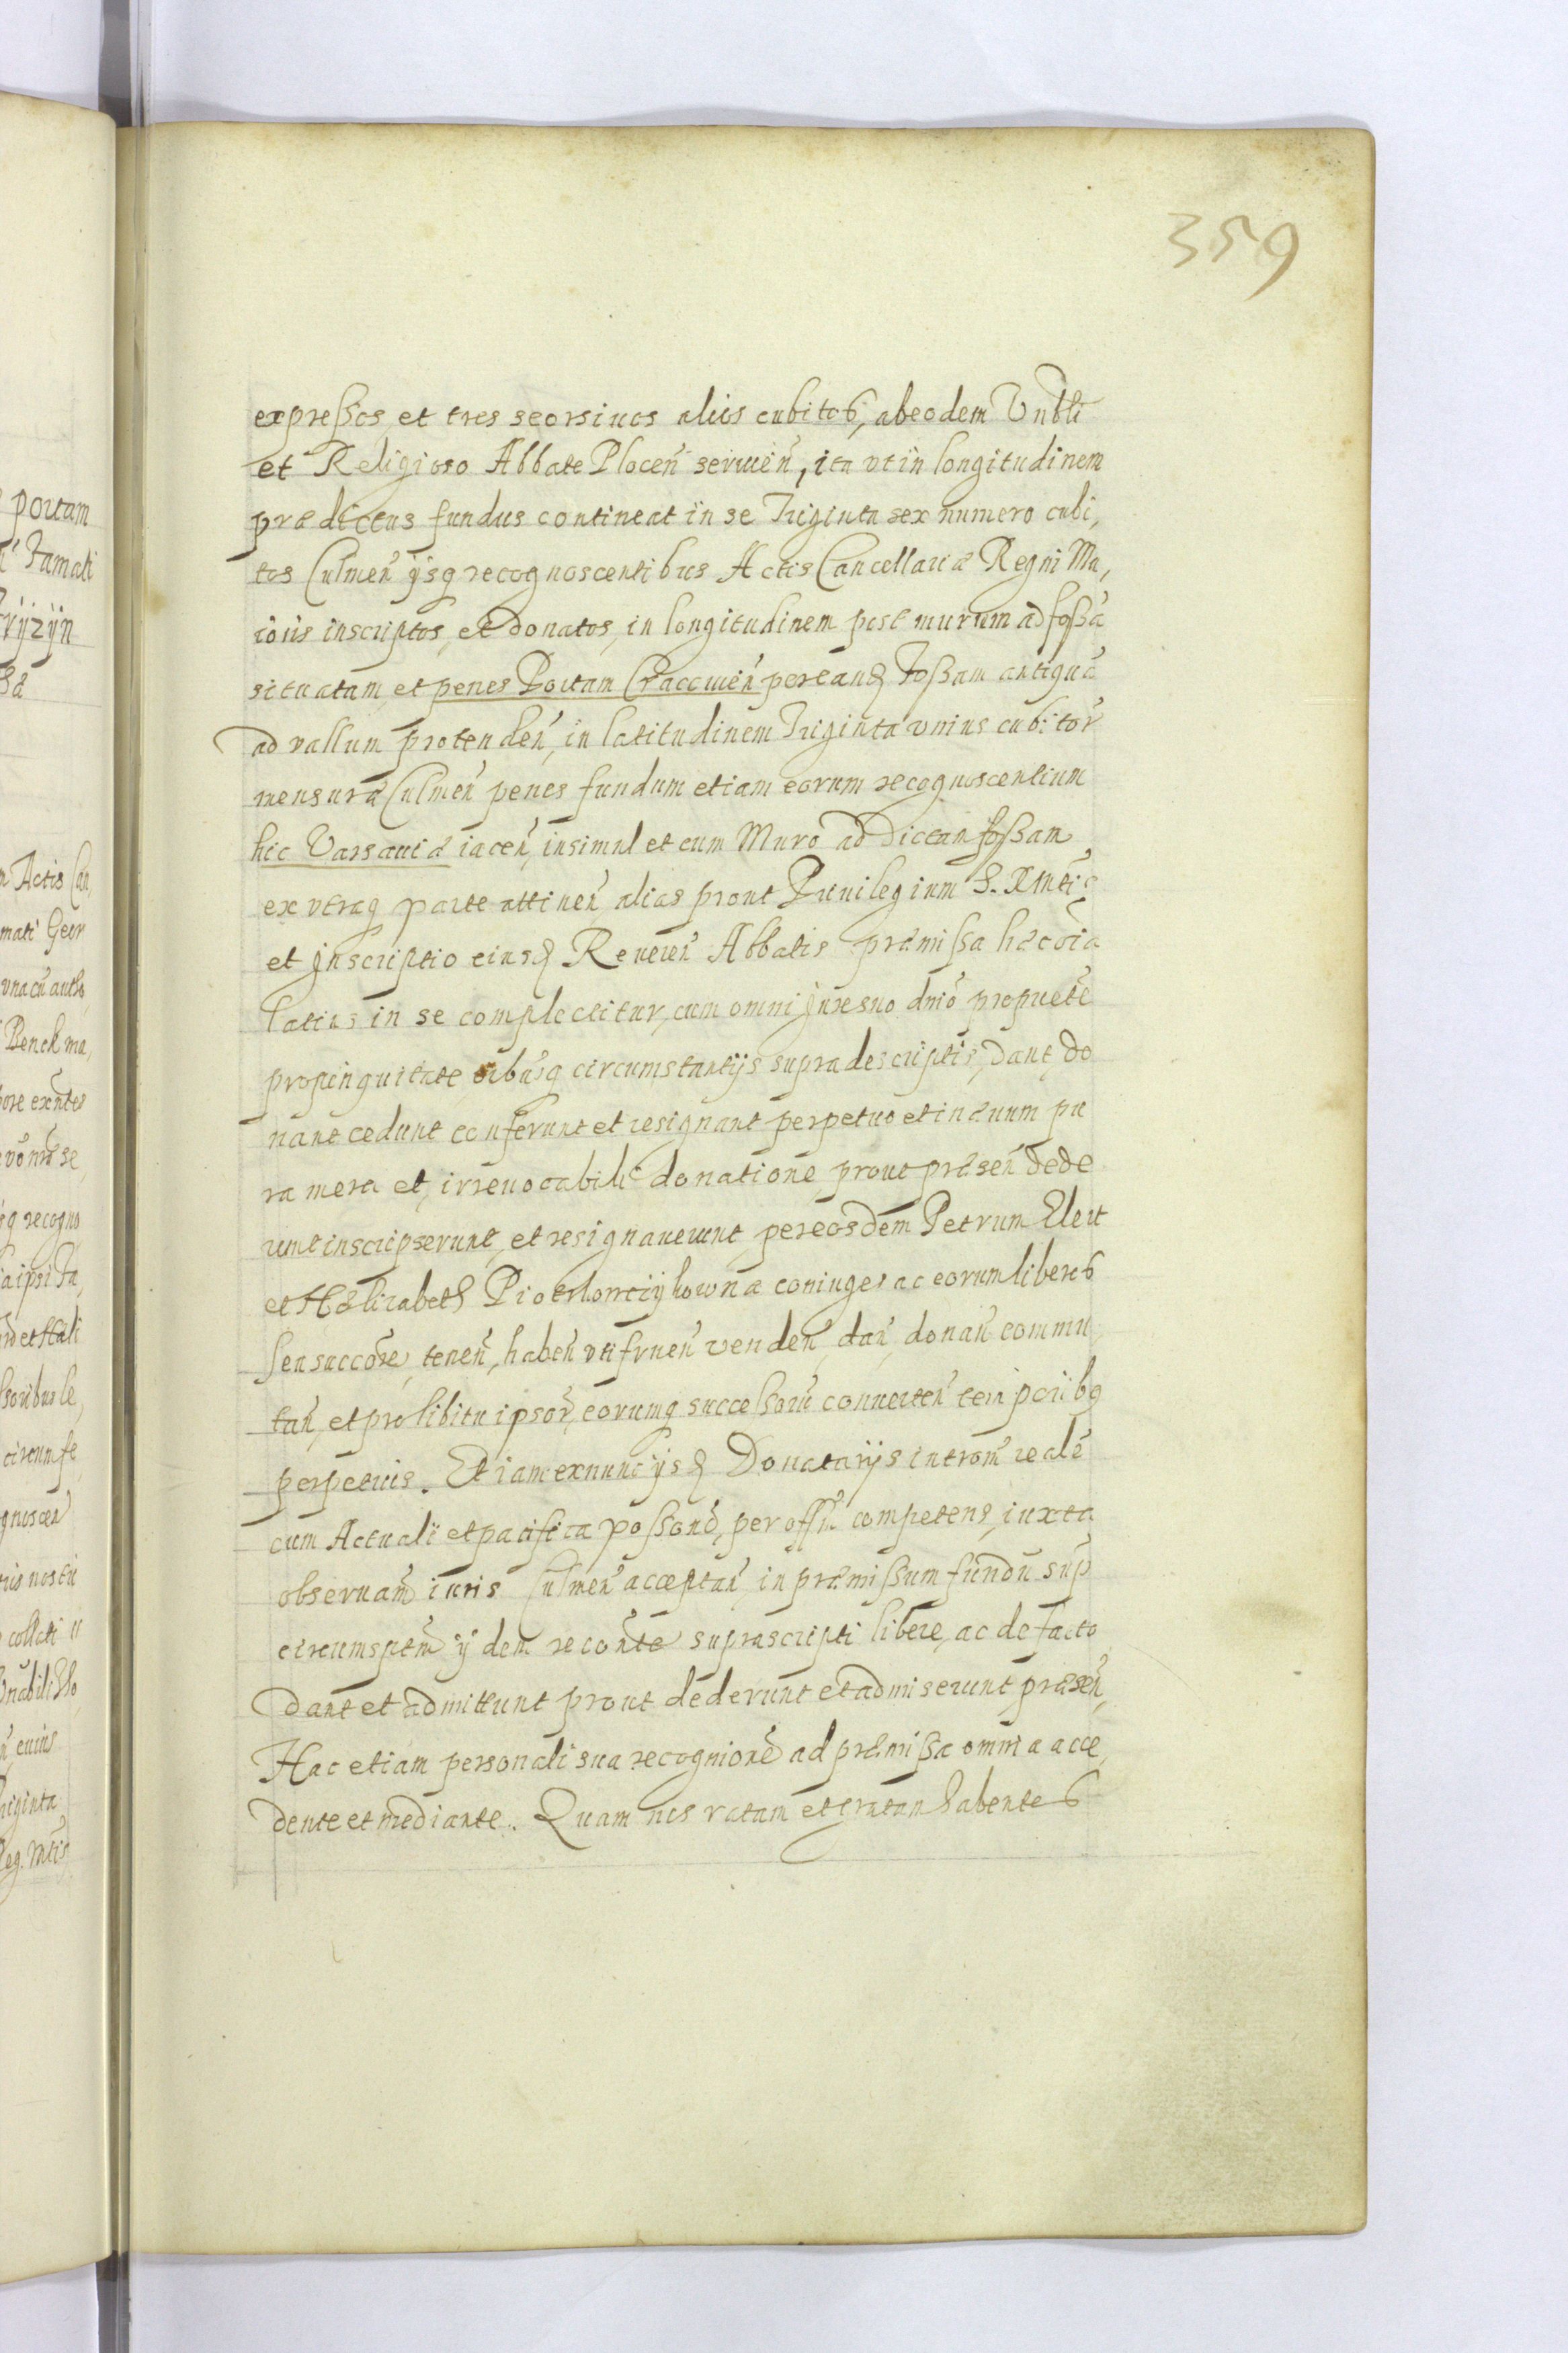 359
expressos et tres seorsivos alios cubitos, ab eodem Vnbli
et Religioso Abbate Plocen̄ servien̄, ita vt in longitudinem
prædictus fundus contineat in se Triginta sex numero cubi,
tos Culmen̄ ijsq recognoscentibus Actis Cancellariæ Regni Ma,
ioris inscriptos, et donatos, in longitudinem post murum ad fossã
situatam et penes Portam Cracovien̄ per eand Fossam antiquã
ad vallum protenden̄, in latitudinem Triginta vnius cubitor̄
mensuræ Culmen̄ penes fundum etiam eorum recognoscentium
hic Varsaviæ iacen̄, insimul et cum Muro ad dictan fossam
ex vtraq parte attinen̄ alias prout Privilegium S. R Mtis
et Inscriptio eiusd Reveren̄ Abbatis præmissa hæc oīa
latius in se complectitur, cum omni Jure suo dnīo proprietē
propinquitate oībusq circumstantijs supradescriptis, dant, do
nant cedunt conferunt et resignant perpetuo et in ævum pu
ra mera et, irrevocabili donatione prout præsen̄ dede
runt inscripserunt, et resignaverunt per eosdem Petrum Elert
et Hælizabeth coniuges ac eorum liberos
seu succōre, tenen̄, haben̄ vtifruen̄ venden̄, dan̄, donan̄ commu
tan̄, et pro libitu ipsor̄, eorumq successorū converten̄ temporibq
perpetuis. Et iam ex nunc ijsd Donatarijs introm̄ realē
cum Actuali et pacifica possonē, per offm̄ competens, iuxta
observam̄ iuris Culmen̄ acceptan̄ in præmissum fundū sup
circumsptm̄ ijdem reconte suprascripti libere, ac de facto
dant et admittunt prout dederunt et admiserunt præsen̄,
Hac etiam personali sua recognionē ad præmissa omnia acce,
dente et mediante. Quam nos ratam et gratam habentes